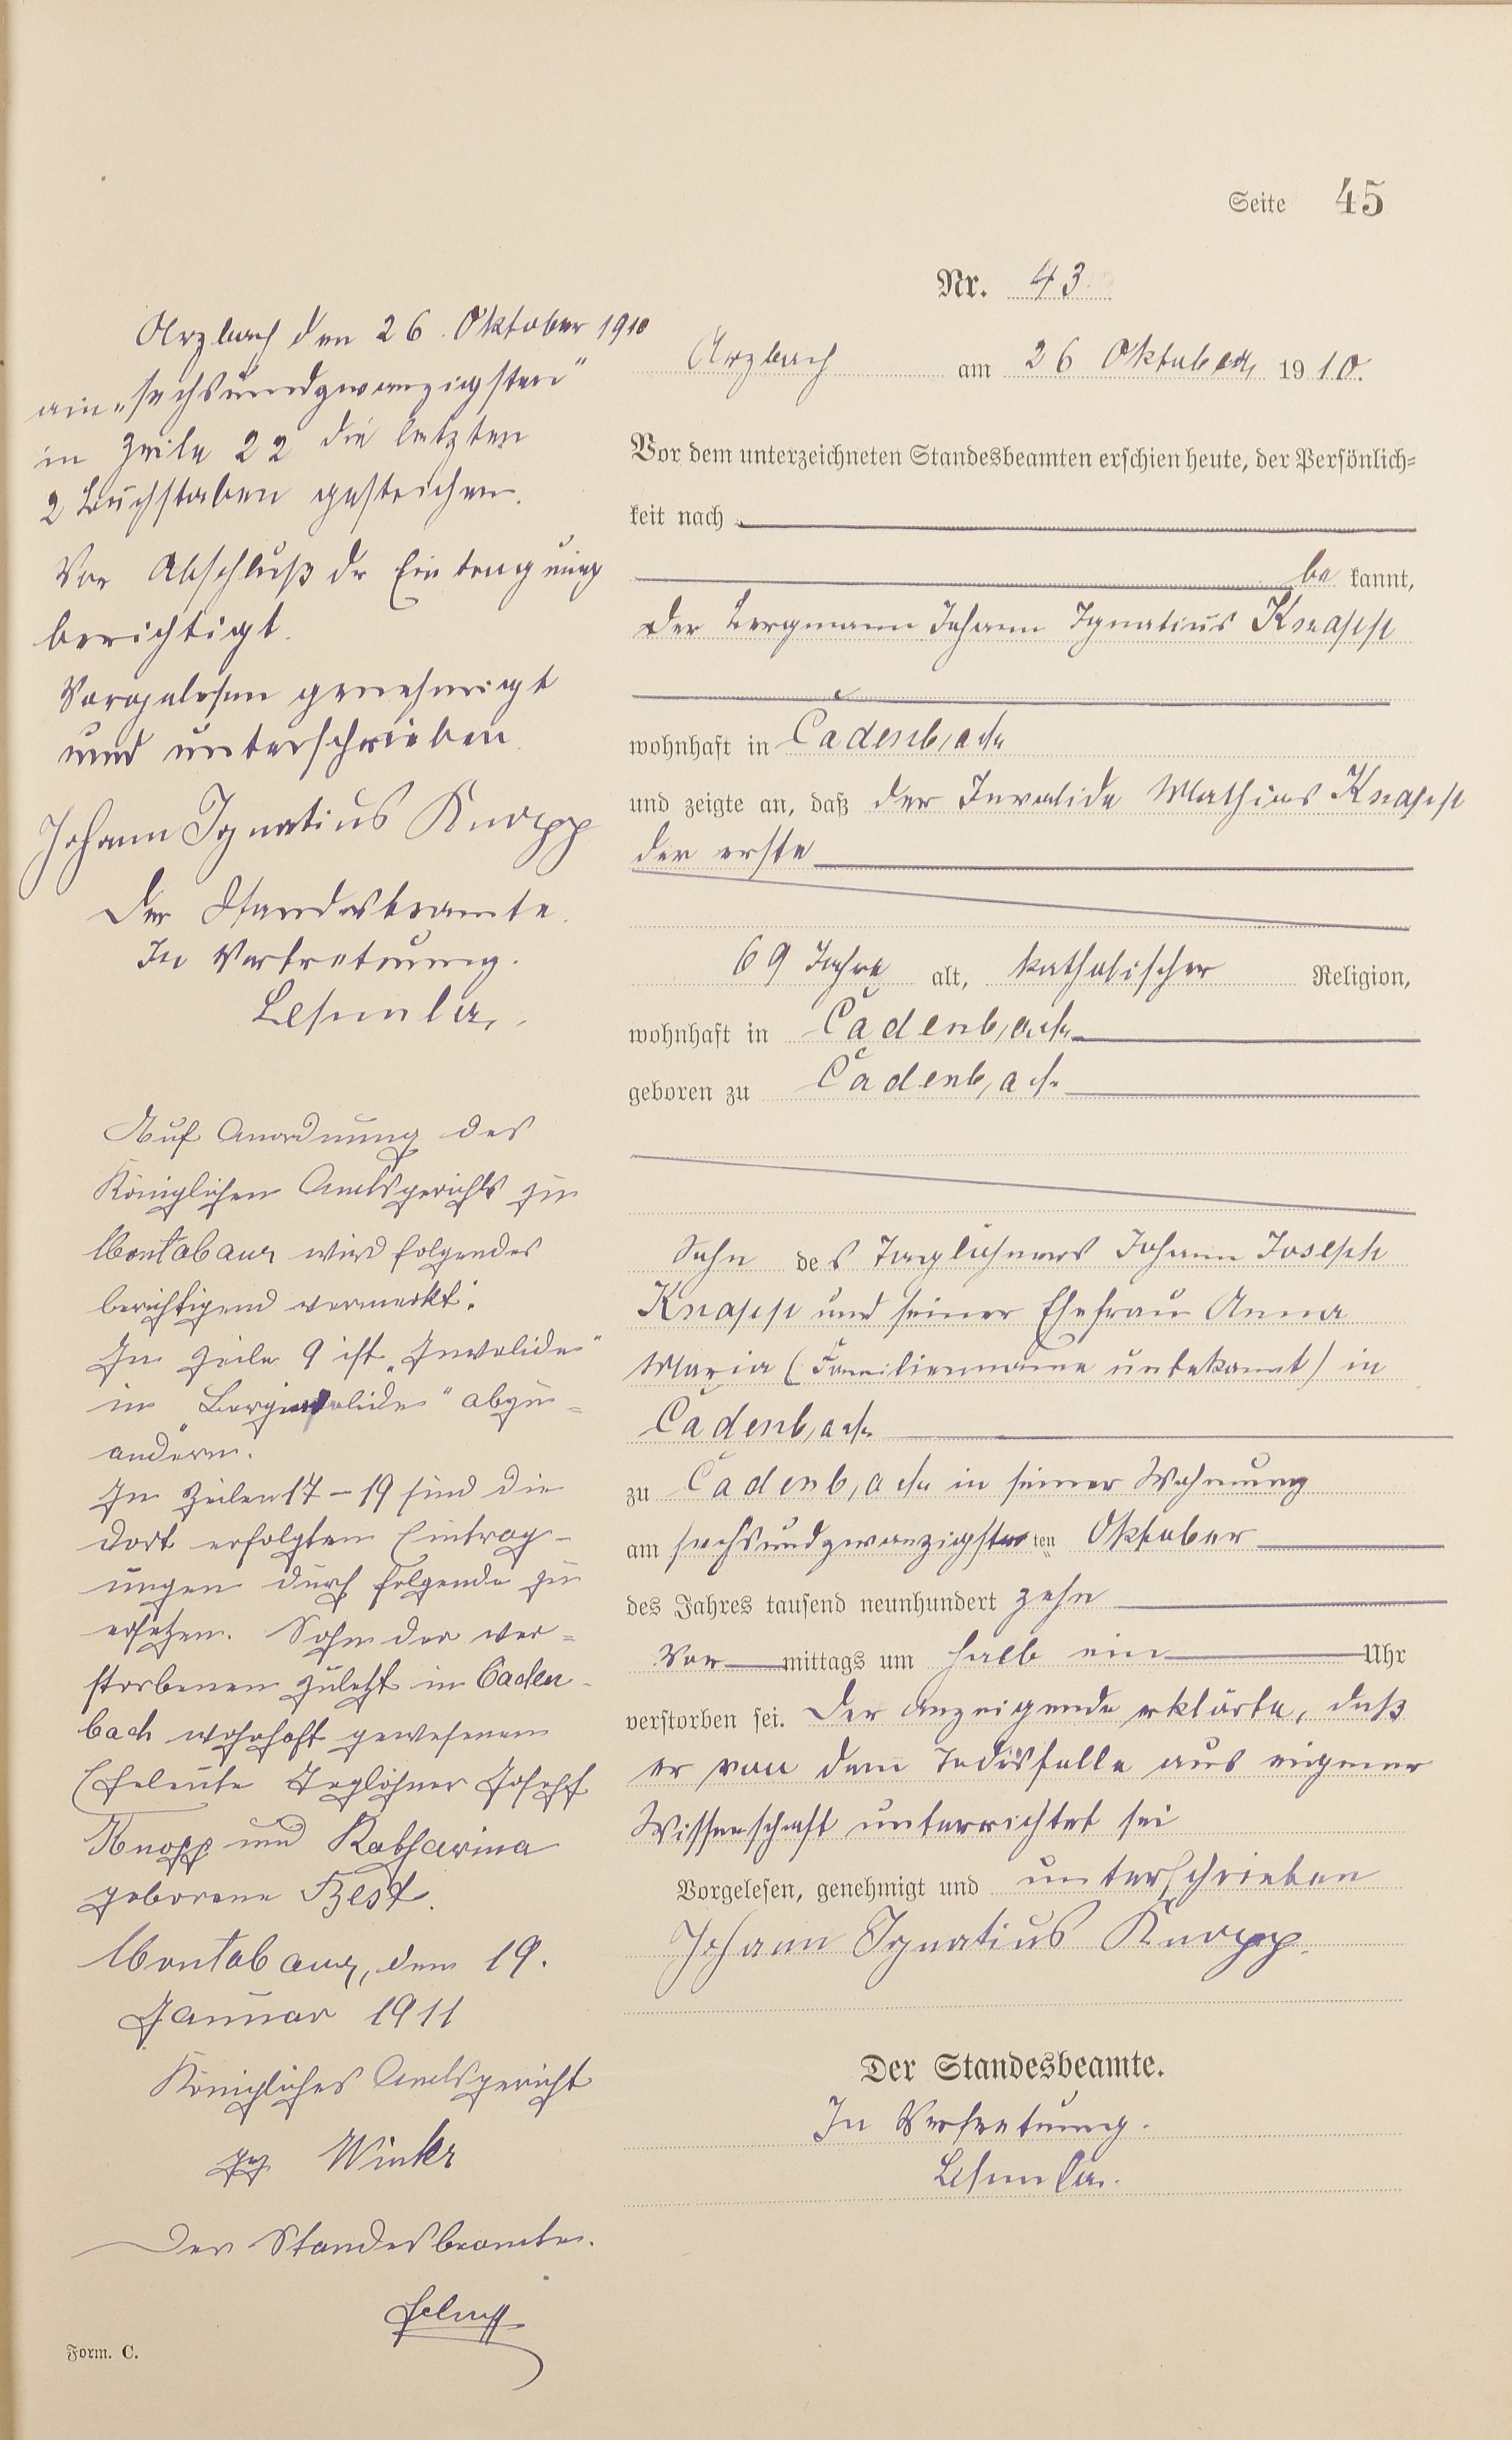 Seite 45
Nr. 43
Arzbach am 26 Oktober 1910.
Vor dem unterzeichneten Standesbeamten erschien heute, der Persönlich=
keit nach
be kannt,
der Bergmann Johann Ignatius Knopp
wohnhaft in Cadenbach
und zeigte an, daß der Invalide Mathias Knopp
der erste
69 Jahre alt, katholischer Religion,
wohnhaft in Cadenbach
geboren zu Cadenbach
Sohn des Taglöhners Johann Joseph
Knopp und seiner Ehefrau Anna
Maria (Familienname unbekannt) in
Cadenbach
zu Cadenbach in seiner Wohnung
am sechsundzwanzigsten ten Oktober
des Jahres tausend neunhundert zehn
Vor mittags um halb ein Uhr
verstorben sei. Der Anzeigende erklärte, daß
er von dem Todesfalle aus eigener
Wissenschaft unterrichtet sei
Vorgelesen, genehmigt und unterschrieben
Johann Ignatius Knopp.
Der Standesbeamte.
In Vertretung.
Arzbach den 26. Oktober 1910
am „sechsundzwanzigsten“
in Zeile 22 die letzten
2 Buchstaben gestrichen.
Vor Abschluß der Eintragung
berichtigt.
Vorgelesen genehmigt
und unterschrieben
Johann Ignatius Knopp
Der Standesbeamte.
In Vertretung.
Auf Anordnung des
Königlichen Amtsgerichts zu
Montabaur wird folgendes
berichtigend vermerkt:
In Zeile 9 ist „Invalide“
in „Berginvalide“ abzu=
ändern.
In Zeilen 17–19 sind die
dort erfolgten Eintrag-
ungen durch folgende zu
ersetzen. Sohn der ver=
storbenen zuletzt in Caden-
bach wohnhaft gewesenen
Eheleute Taglöhner Joseph
Knopp und Katharina
geborene Best.
Montabaur, den 19.
Januar 1911
Königliches Amtsgericht
gez Winkr
Der Standesbeamte.
Form. C.